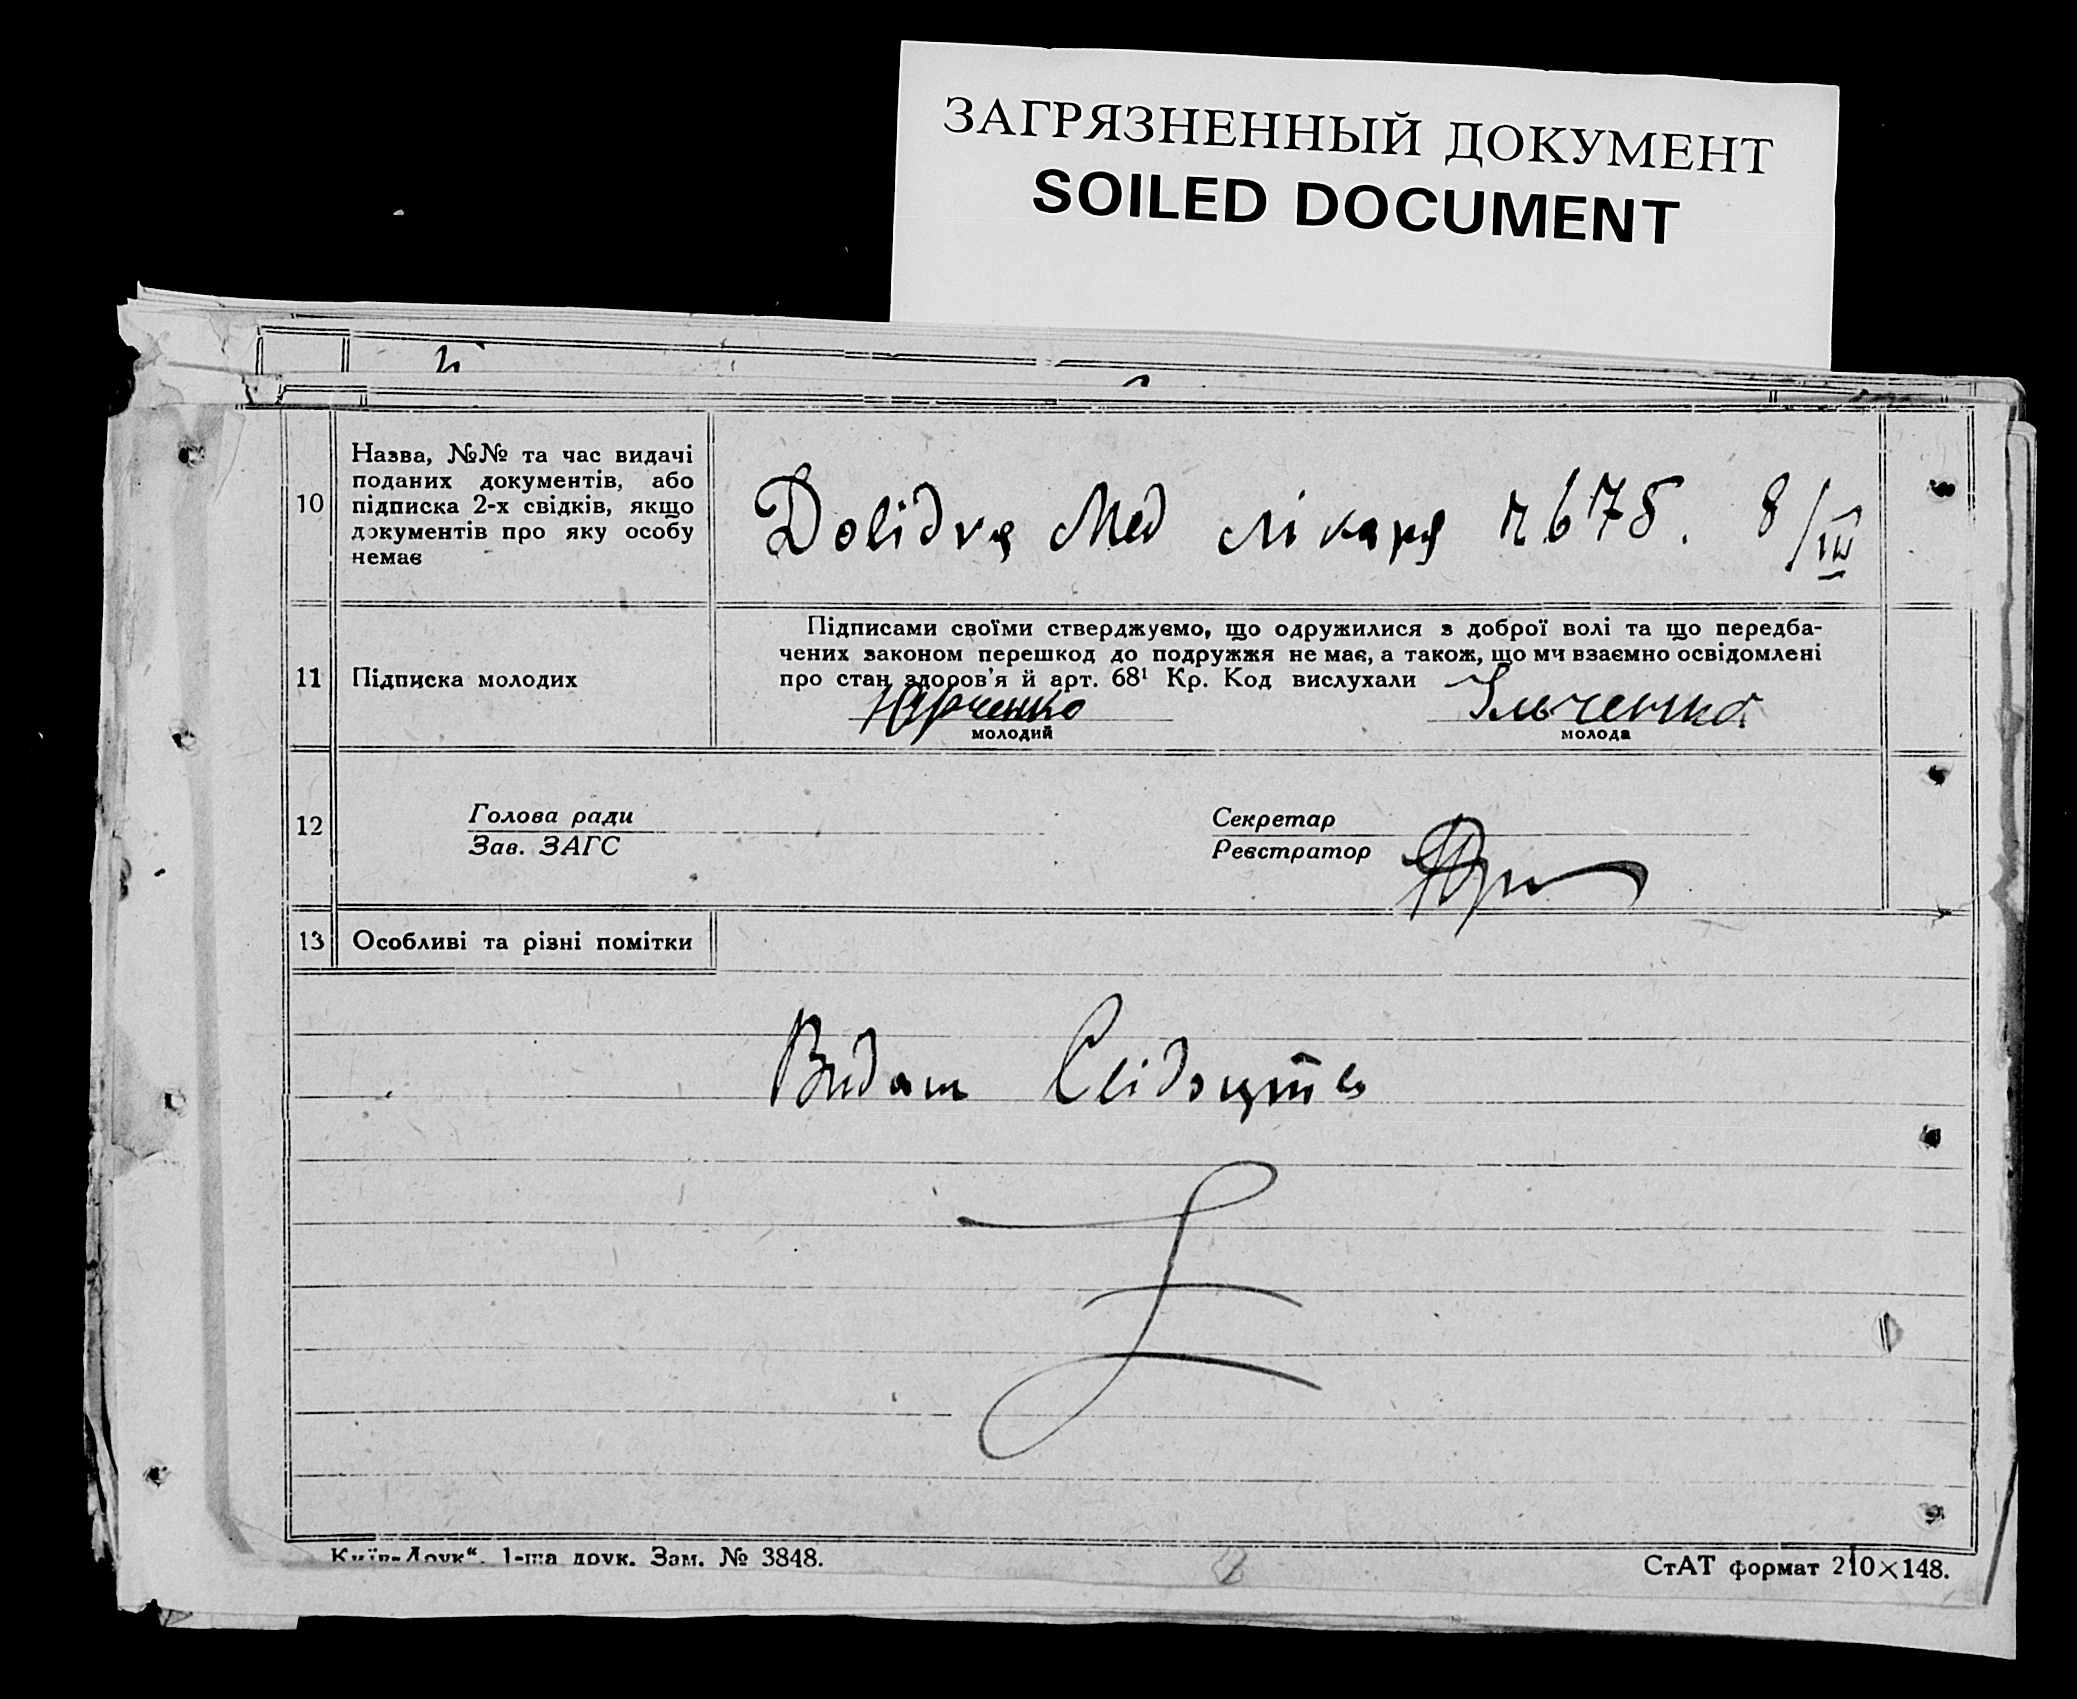 ЗАГРЯЗНЕННЫЙ ДОКУМЕНТ
SOILED DOCUMENT
10
Назва, №№ та час видачі
поданих документів, або
підписка 2-х свідків, якщо
документів про яку особу
немає
Довідка Мед лікаря 8/III
Підписами своїми стверджуємо, що одружилися з доброї волі та що передба-
чених законом перешкод до подружжя не має, а також, що ми взаємно освідомлені
про стан здоров'я й арт. 68¹ Кр. Код вислухали
11
Підписка молодих
Юрченко
Ільченко
молодий
молода
12
Голова ради
Зав. ЗАГС
Секретар
Реєстратор
13
Особливі та різні помітки
Видан Свідоцтв
Київ-Друк“. 1-ша друк. Зам. № 3848.
СтАТ формат 210×148.